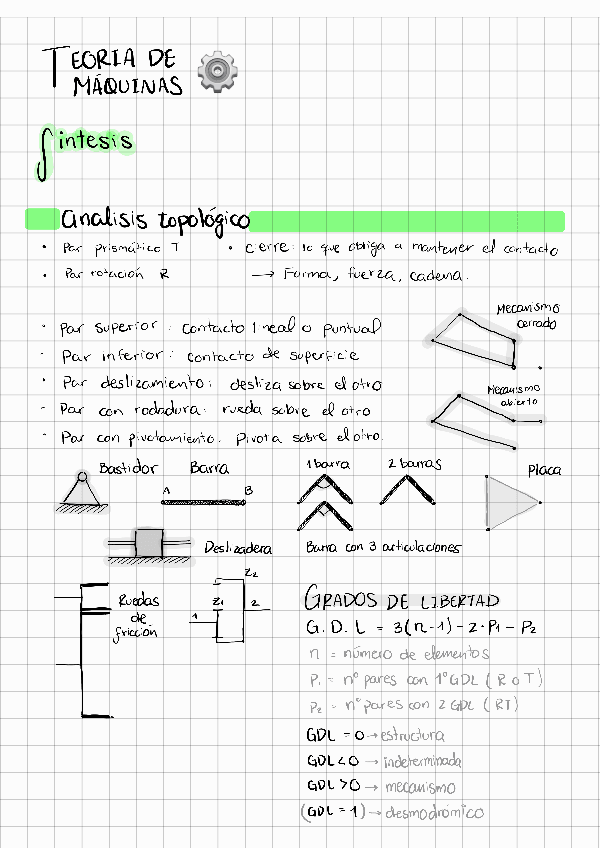 TEORIA DE
MÁQUINAS
Síntesis
analisis topológico
· Par prismático T
· Par rotación R
· cerre: lo que obliga a mantener el contacto
→ Forma, fuerza, cadena.
· Par superior: contacto lineal o puntual
· Par inferior: contacto de superficie
· Par deslizamiento: desliza sobre el otro
· Par con rodadura: rueda sobre el otro
· Par con pivotamiento. Pivota sobre el otro.
Mecanismo
cerrado
Mecanismo
abierto
Bastidor
Barra
A B
1 barra
2 barras
Placa
Deslizadera
Barra con 3 articulaciones
Ruedas
de
fricción
Z2
Z1
1
2
GRADOS DE LIBERTAD
G. D. L = 3(n-1) - 2·P1 - P2
n = número de elementos
P1 = nº pares con 1º GDL (R o T)
P2 = nº pares con 2 GDL (RT)
GDL = 0 → estructura
GDL < 0 → indeterminada
GDL > 0 → mecanismo
(GDL = 1) → desmodrómico